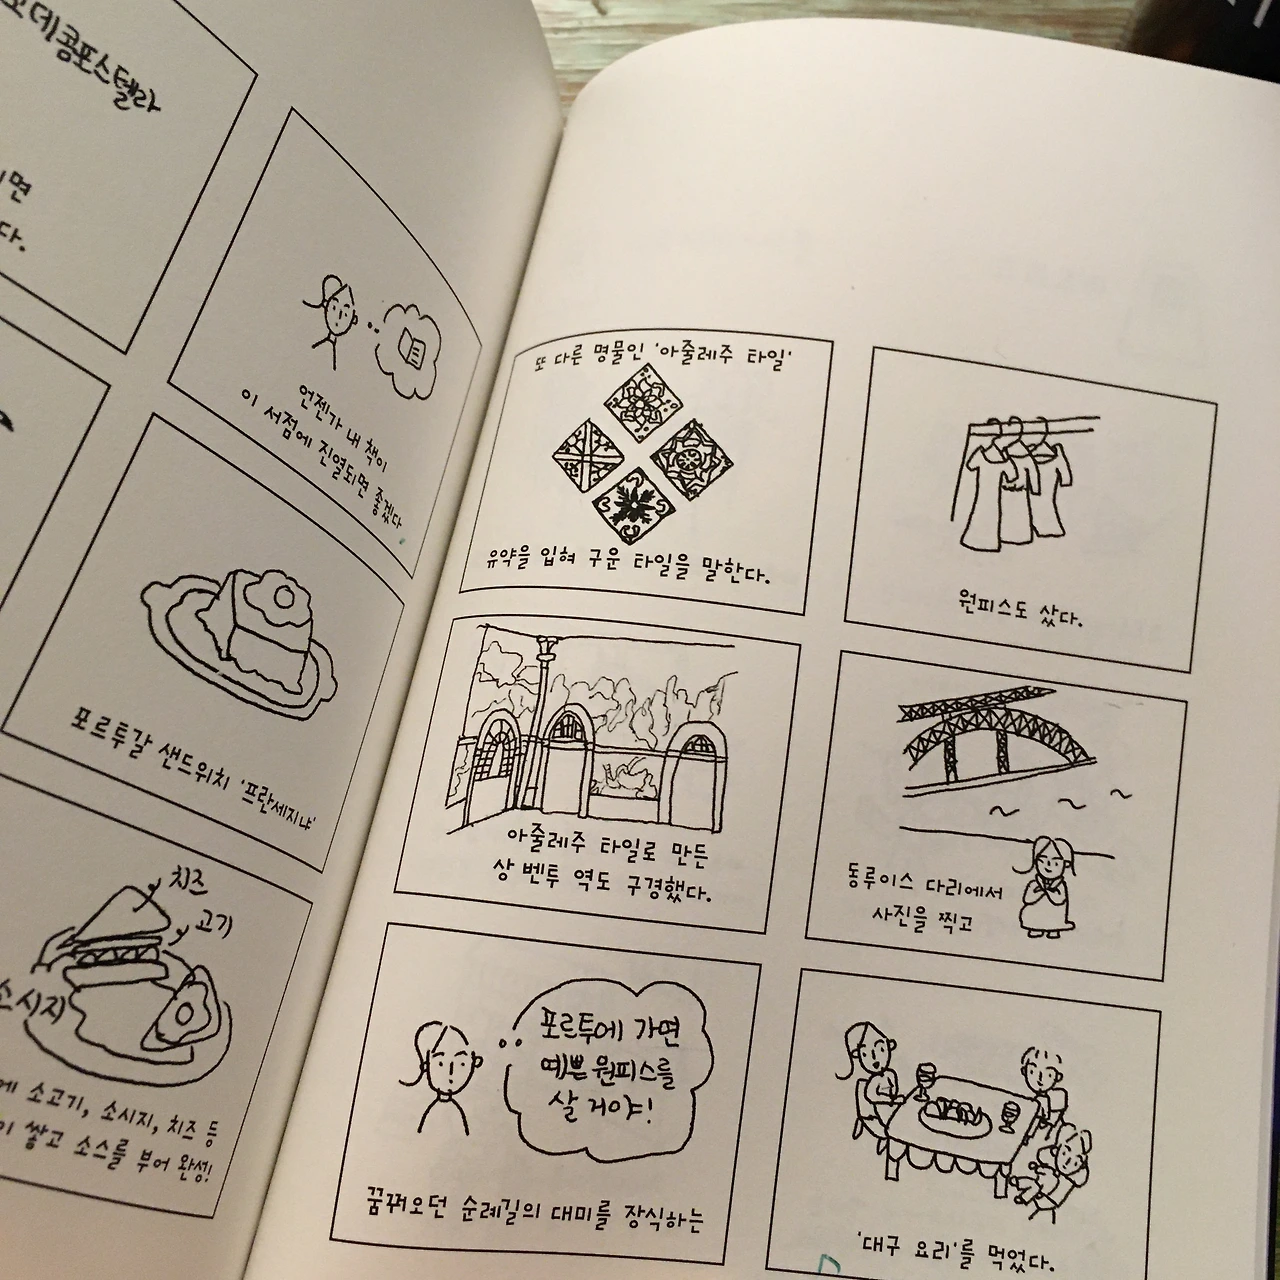 데콤포스텔라
면
다.
언젠가 내 책이
이 서점에 진열되면 좋겠다
포르투갈 샌드위치 '프란세지냐'
치즈
고기
소시지
에 소고기, 소시지, 치즈 등
이 쌓고 소스를 부어 완성!
또 다른 명물인 '아줄레주 타일'
유약을 입혀 구운 타일을 말한다.
아줄레주 타일로 만든
상 벤투 역도 구경했다.
포르투에 가면
예쁜 원피스를
살 거야!
꿈꿔오던 순례길의 대미를 장식하는
원피스도 샀다.
동루이스 다리에서
사진을 찍고
'대구 요리'를 먹었다.